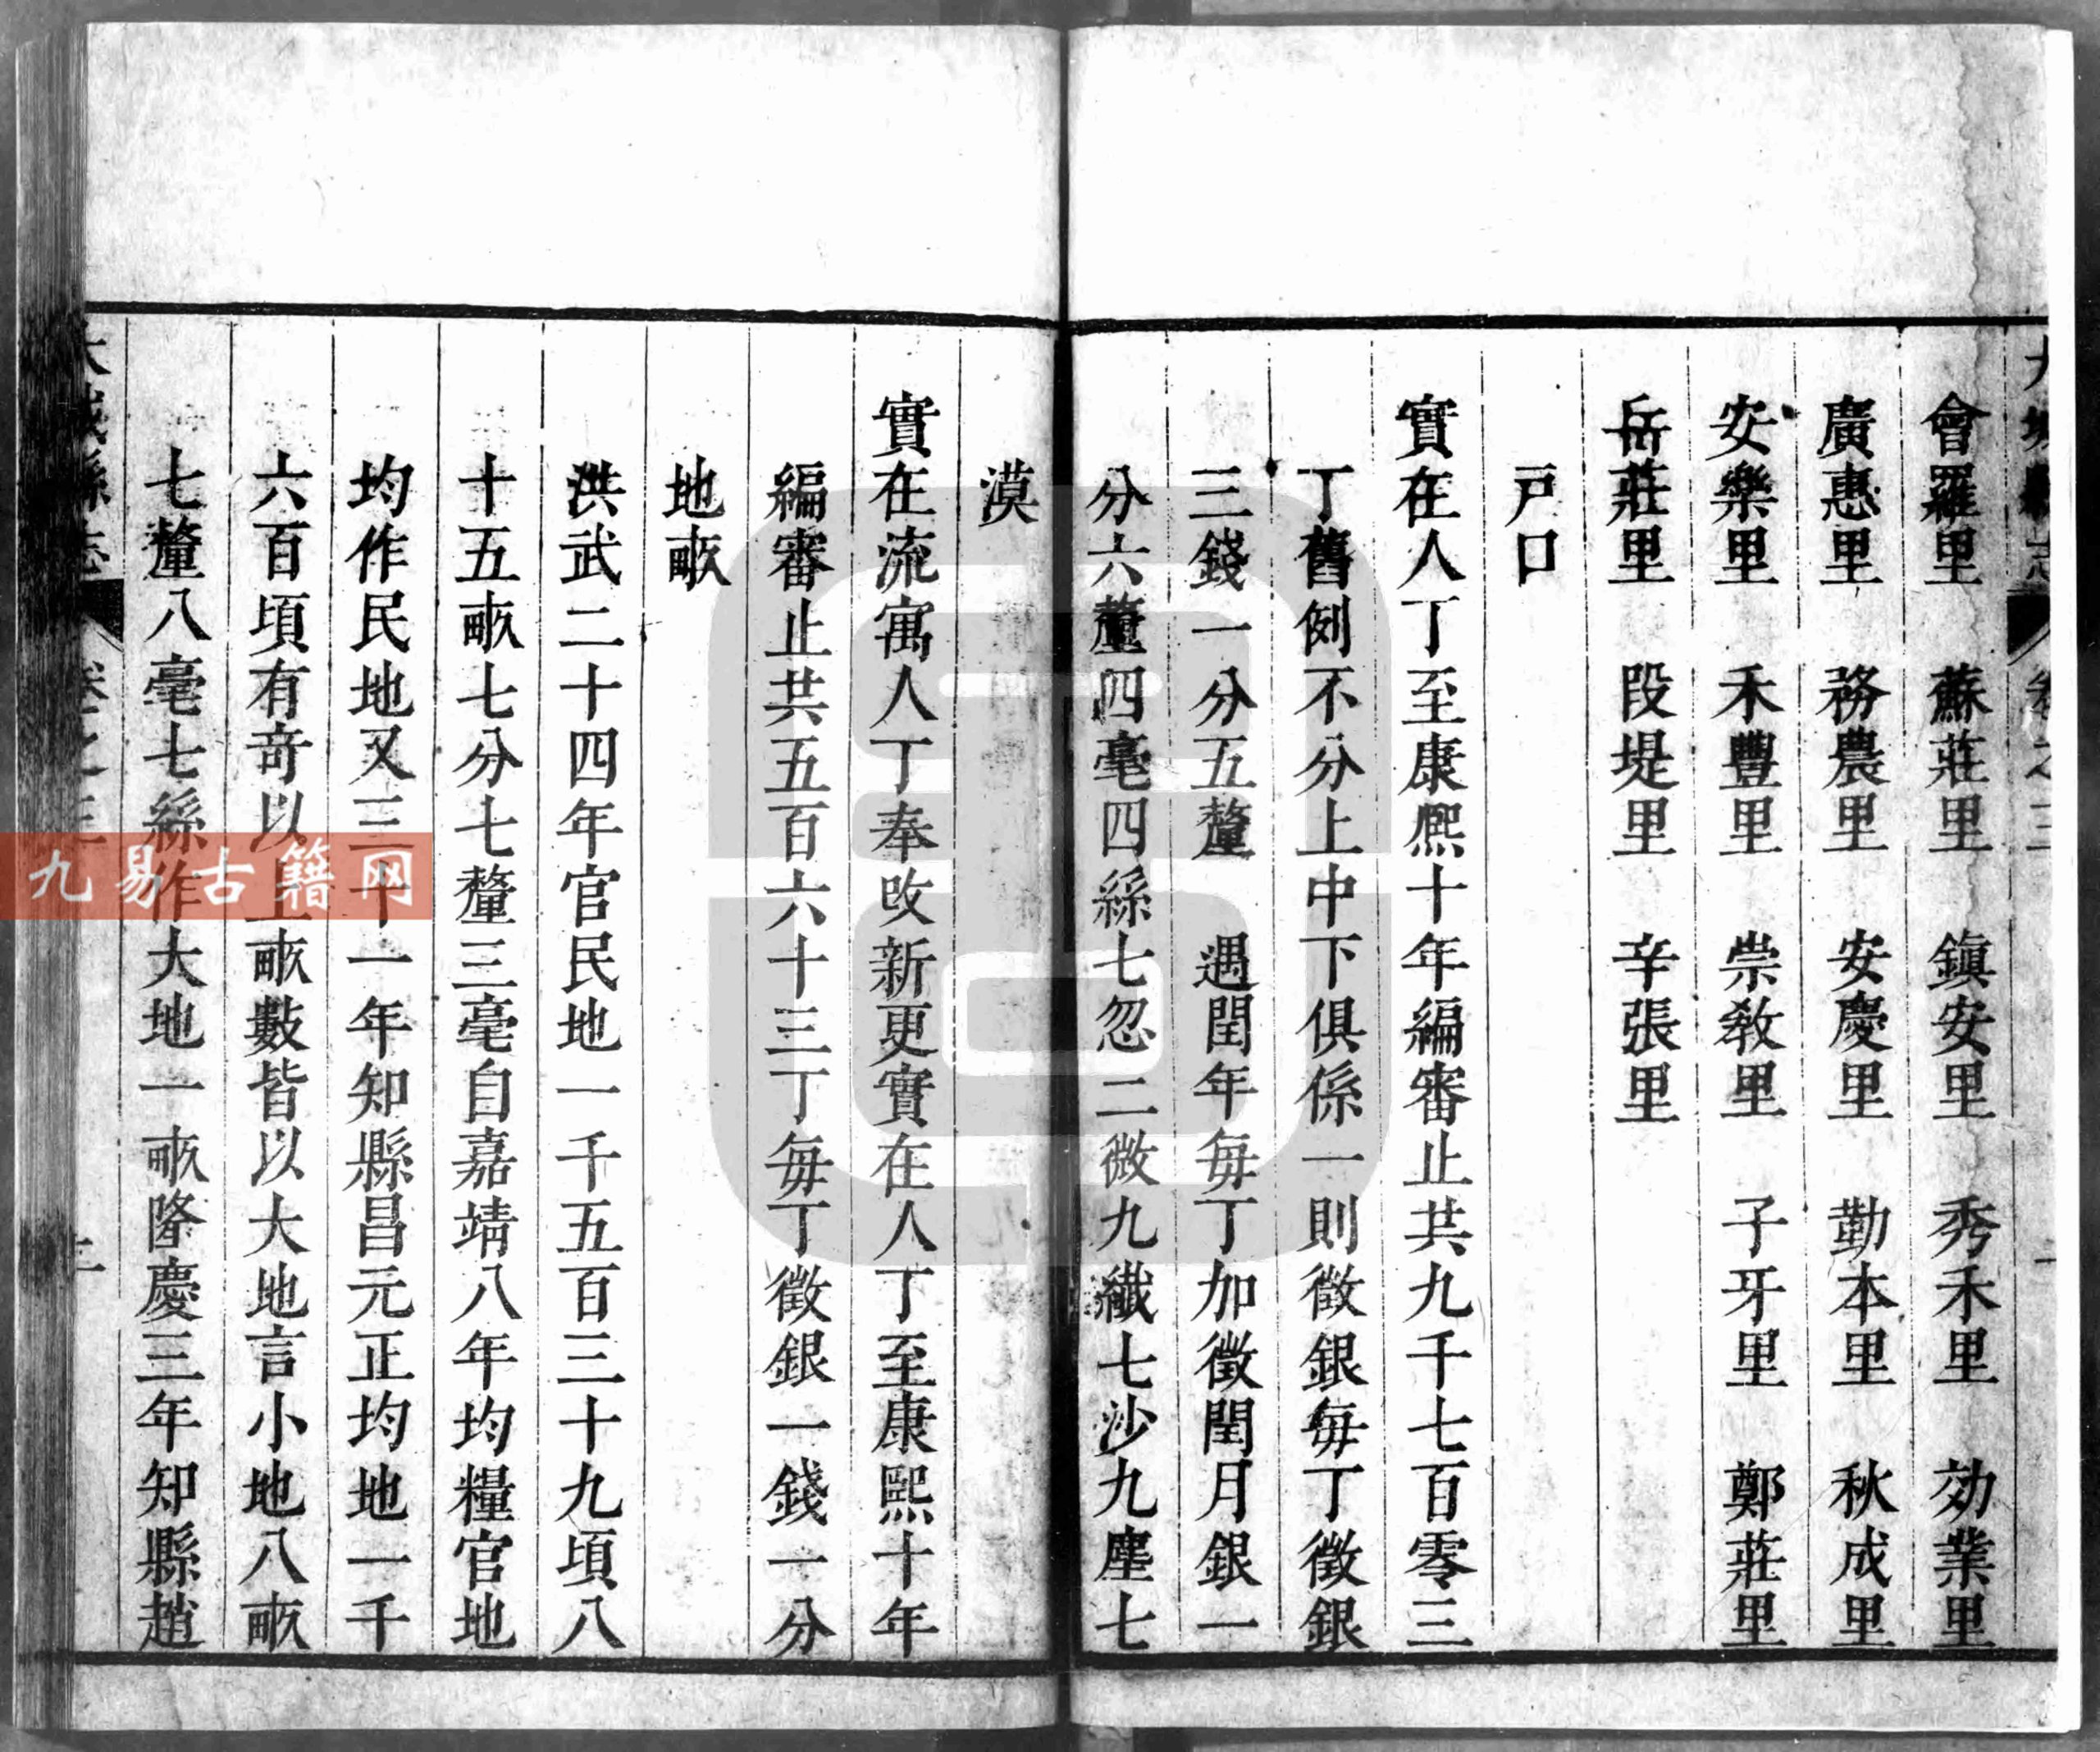 會羅里　蘇莊里　鎮安里　秀禾里　効業里
廣惠里　務農里　安慶里　勤本里　秋成里
安樂里　禾豐里　崇敎里　子牙里　鄭莊里
岳莊里　段堤里　辛張里
戸口
實在人丁至康熈十年編審止共九千七百零三
丁舊例不分上中下俱係一則徵銀每丁徵銀
三錢一分五釐　遇閏年每丁加徵閏月銀一
分六釐四毫四絲七忽二微九纎七沙九塵七
漠
實在流寓人丁奉改新更實在人丁至康熙十年
編審止共五百六十三丁每丁徵銀一錢一分
地畝
洪武二十四年官民地一千五百三十九頃八
十五畝七分七釐三毫自嘉靖八年均糧官地
均作民地又三十一年知縣昌元正均地一千
六百頃有奇以上畝數皆以大地言小地八畝
七釐八毫七絲作大地一畝隆慶三年知縣趙
大城縣志　卷之三　二
九易古籍网